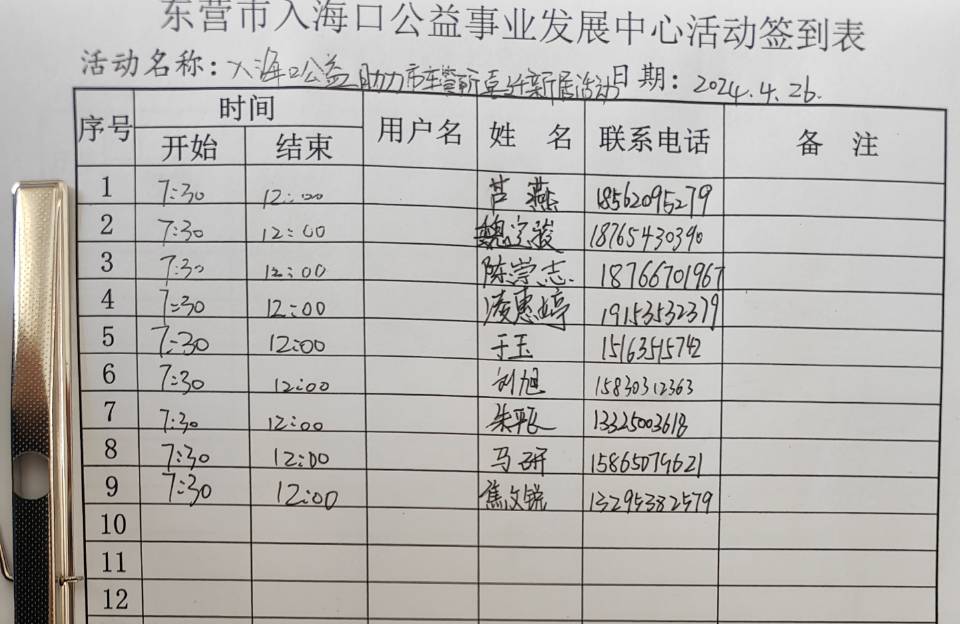 东营市入海口公益事业发展中心活动签到表
活动名称：入海口公益助力市车管所喜迁新居活动 日期：2024.4.26.
序号 时间 用户名 姓 名 联系电话 备 注
开始 结束
1 7:30 12:00 芦燕 18562095279
2 7:30 12:00 魏宗骏 18765430390
3 7:30 12:00 陈崇志 18766701967
4 7:30 12:00 凌惠婷 19153532379
5 7:30 12:00 于玉 15163515742
6 7:30 12:00 刘旭 15830312363
7 7:30 12:00 朱平 13325003618
8 7:30 12:00 马研 15865079621
9 7:30 12:00 焦文锐 13295382579
10
11
12